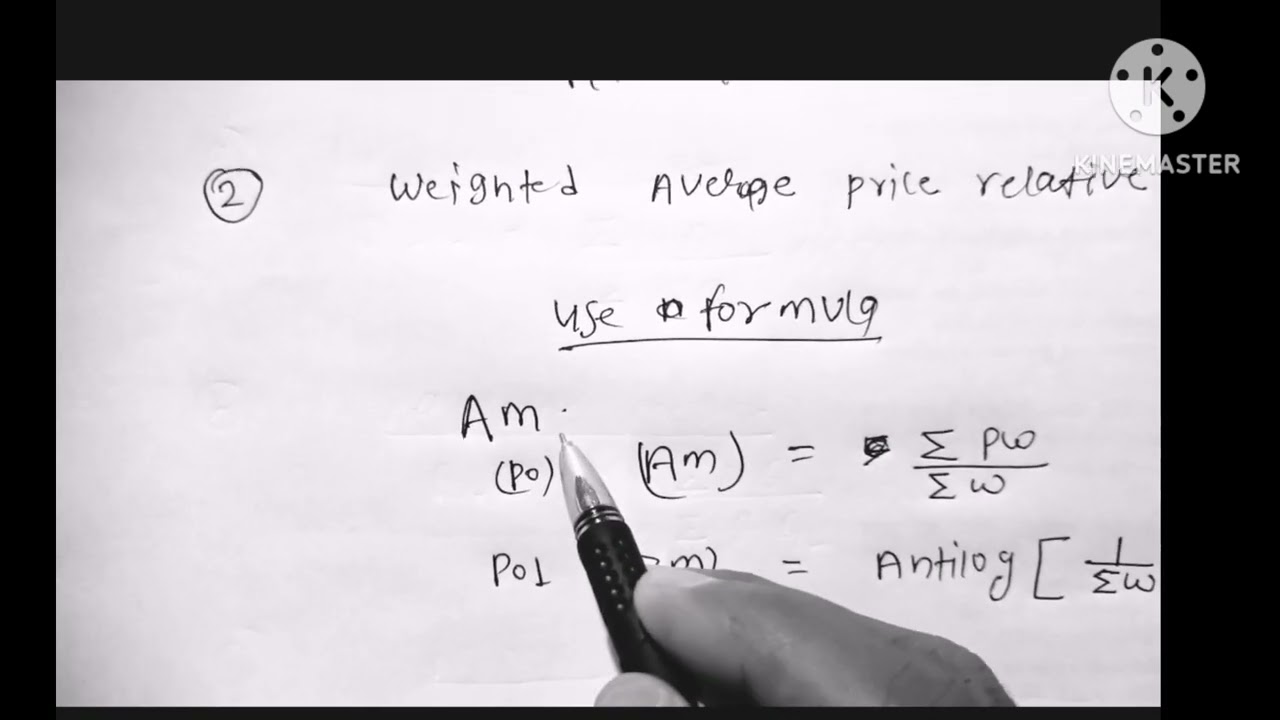 KINEMASTER
② Weighted Average price relative
use formula
Am
(Po) (Am) = Σ PW / Σ W
Po1 m) = Antilog [ 1 / ΣW